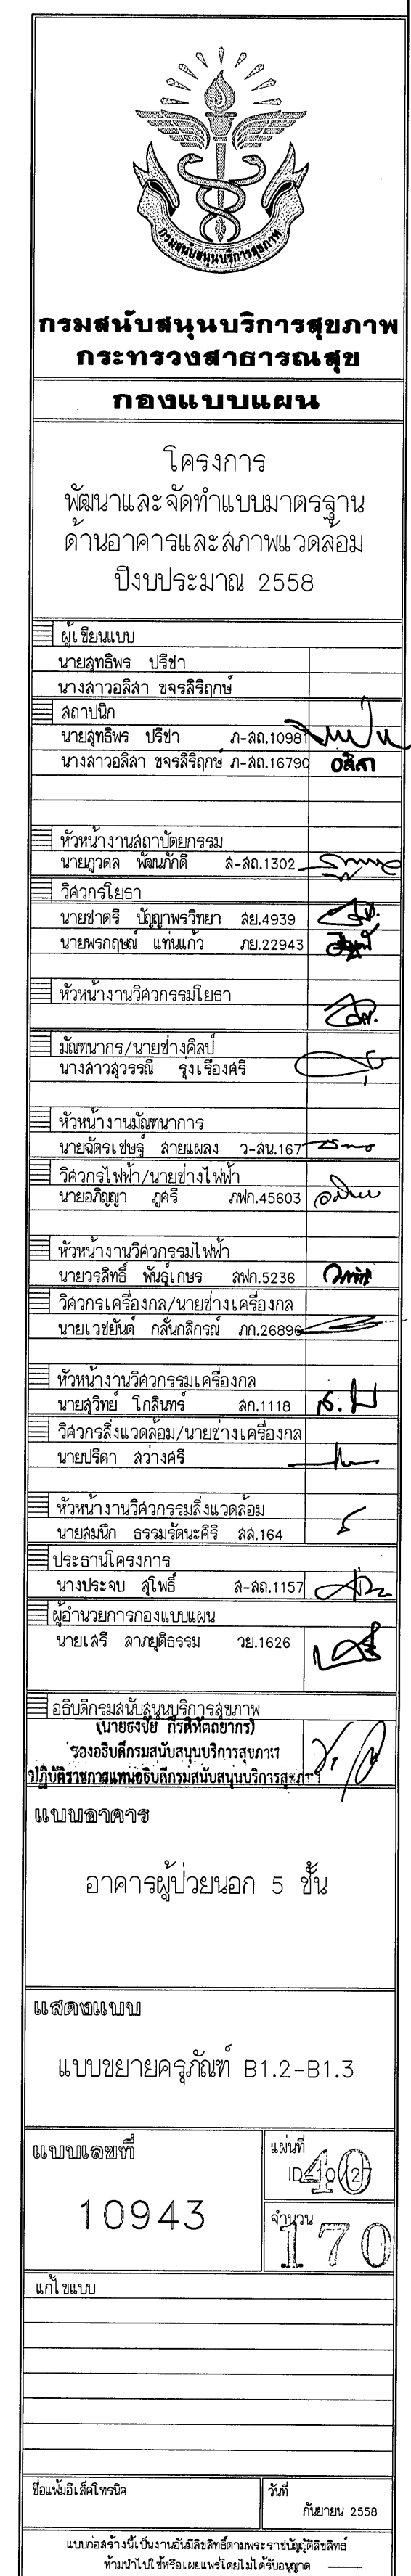 กรมสนับสนุนบริการสุขภาพ
กรมสนับสนุนบริการสุขภาพ
กระทรวงสาธารณสุข
กองแบบแผน
โครงการ
พัฒนาและจัดทำแบบมาตรฐาน
ด้านอาคารและสภาพแวดล้อม
ปีงบประมาณ 2558
ผู้เขียนแบบ
นายสุทธิพร ปรีชา
นางสาวอลิสา ขจรสิริฤกษ์
สถาปนิก
นายสุทธิพร ปรีชา ภ-สถ.10981
นางสาวอลิสา ขจรสิริฤกษ์ ภ-สถ.16790
อลิสา
หัวหน้างานสถาปัตยกรรม
นายภูวดล พัฒนภักดี ส-สถ.1302
วิศวกรโยธา
นายชาตรี ปัญญาพรวิทยา สย.4939
นายพรกฤษณ์ แท่นแก้ว ภย.22943
หัวหน้างานวิศวกรรมโยธา
มัณฑนากร/นายช่างศิลป์
นางสาวสุวรรณี รุ่งเรืองศรี
หัวหน้างานมัณฑนาการ
นายฉัตรเชษฐ์ สายแผลง ว-สน.167
วิศวกรไฟฟ้า/นายช่างไฟฟ้า
นายอภิญญา ภูศรี ภฟก.45603
หัวหน้างานวิศวกรรมไฟฟ้า
นายวรสิทธิ์ พันธุ์เกษร สฟก.5236
วิศวกรเครื่องกล/นายช่างเครื่องกล
นายเวชยันต์ กลั่นกลิกรณ์ ภก.26896
หัวหน้างานวิศวกรรมเครื่องกล
นายสุวิทย์ โกสินทร์ สก.1118
วิศวกรสิ่งแวดล้อม/นายช่างเครื่องกล
นายปรีดา สว่างศรี
หัวหน้างานวิศวกรรมสิ่งแวดล้อม
นายสมนึก ธรรมรัตนะศิริ สส.164
ประธานโครงการ
นางประจบ สุโพธิ์ ส-สถ.1157
ผู้อำนวยการกองแบบแผน
นายเสรี ลาภยุติธรรม วย.1626
อธิบดีกรมสนับสนุนบริการสุขภาพ
(นายธงชัย กีรติหัตถยากร)
รองอธิบดีกรมสนับสนุนบริการสุขภาพ
ปฏิบัติราชการแทนอธิบดีกรมสนับสนุนบริการสุขภาพ
แบบอาคาร
อาคารผู้ป่วยนอก 5 ชั้น
แสดงแบบ
แบบขยายครุภัณฑ์ B1.2-B1.3
แบบเลขที่
10943
แผ่นที่
ID-10/27
40
จำนวน
170
แก้ไขแบบ
ชื่อแฟ้มอิเล็คโทรนิค
วันที่
กันยายน 2558
แบบก่อสร้างนี้เป็นงานอันมีลิขสิทธิ์ตามพระราชบัญญัติลิขสิทธิ์
ห้ามนำไปใช้หรือเผยแพร่โดยไม่ได้รับอนุญาต